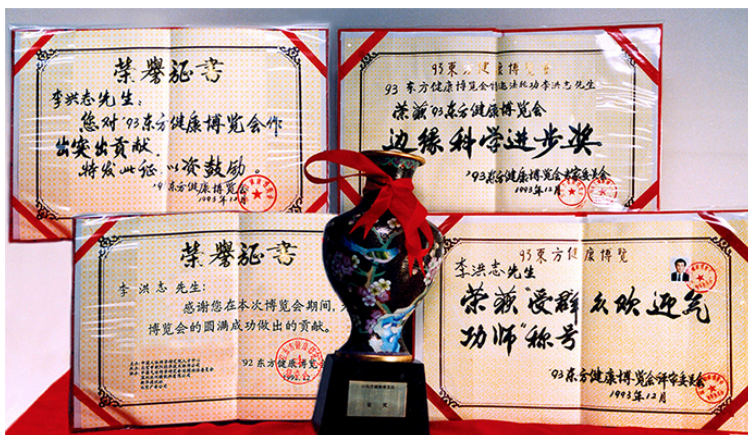 荣誉证书
李洪志先生：
您对'93东方健康博览会作
出突出贡献．
特发此征．以资鼓励。
'93东方健康博览会
1993年12月
93東方健康博览会
荣获'93东方健康博览会
边缘科学进步奖
'93东方健康博览会专家委员会
1993年12月
荣誉证书
李洪志先生:
感谢您在本次博览会期间,
博览会的圆满成功做出的贡献。
'92东方健康博览
1992.12
93東方健康博览
李洪志先生
荣获"受群众欢迎气
功师"称号
'93东方健康博览会评审委员会
1993年12月